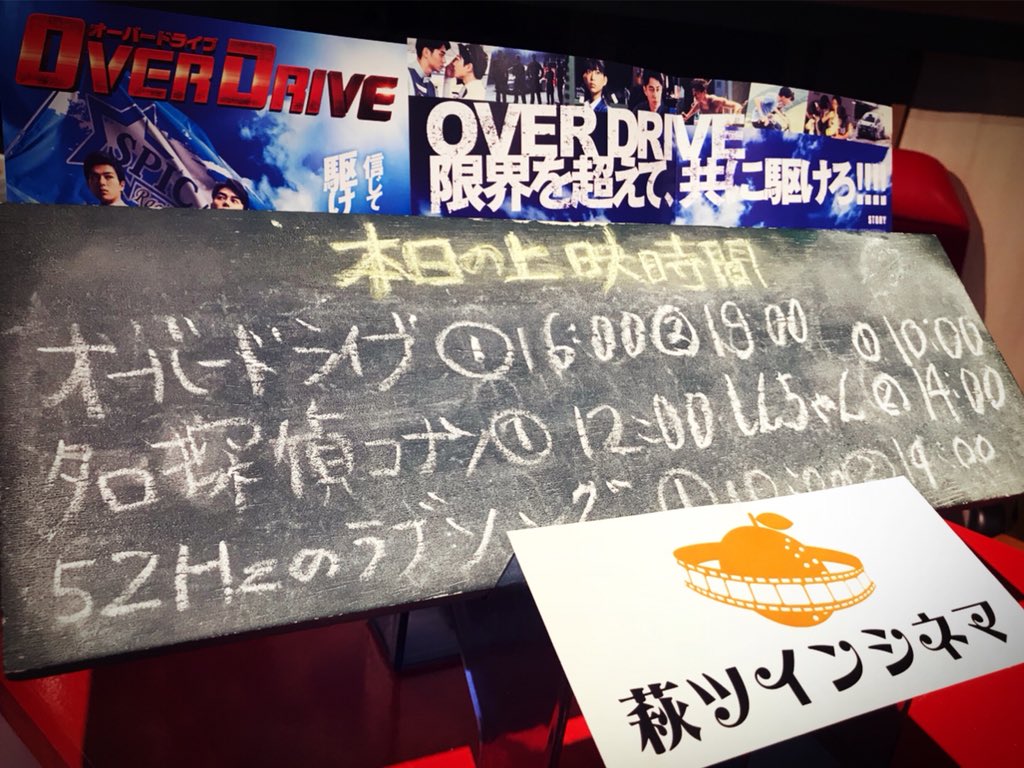 オーバードライブ
OVER DRIVE
SPIC
信じて
駆け
OVER DRIVE
限界を超えて、共に駆けろ!!!!
STORY
本日の上映時間
オーバードライブ ①16:00②18:00 ①10:00
名探偵コナン①12:00 しんちゃん②14:00
52Hzのラブソング ① ②19:00
萩ツインシネマ